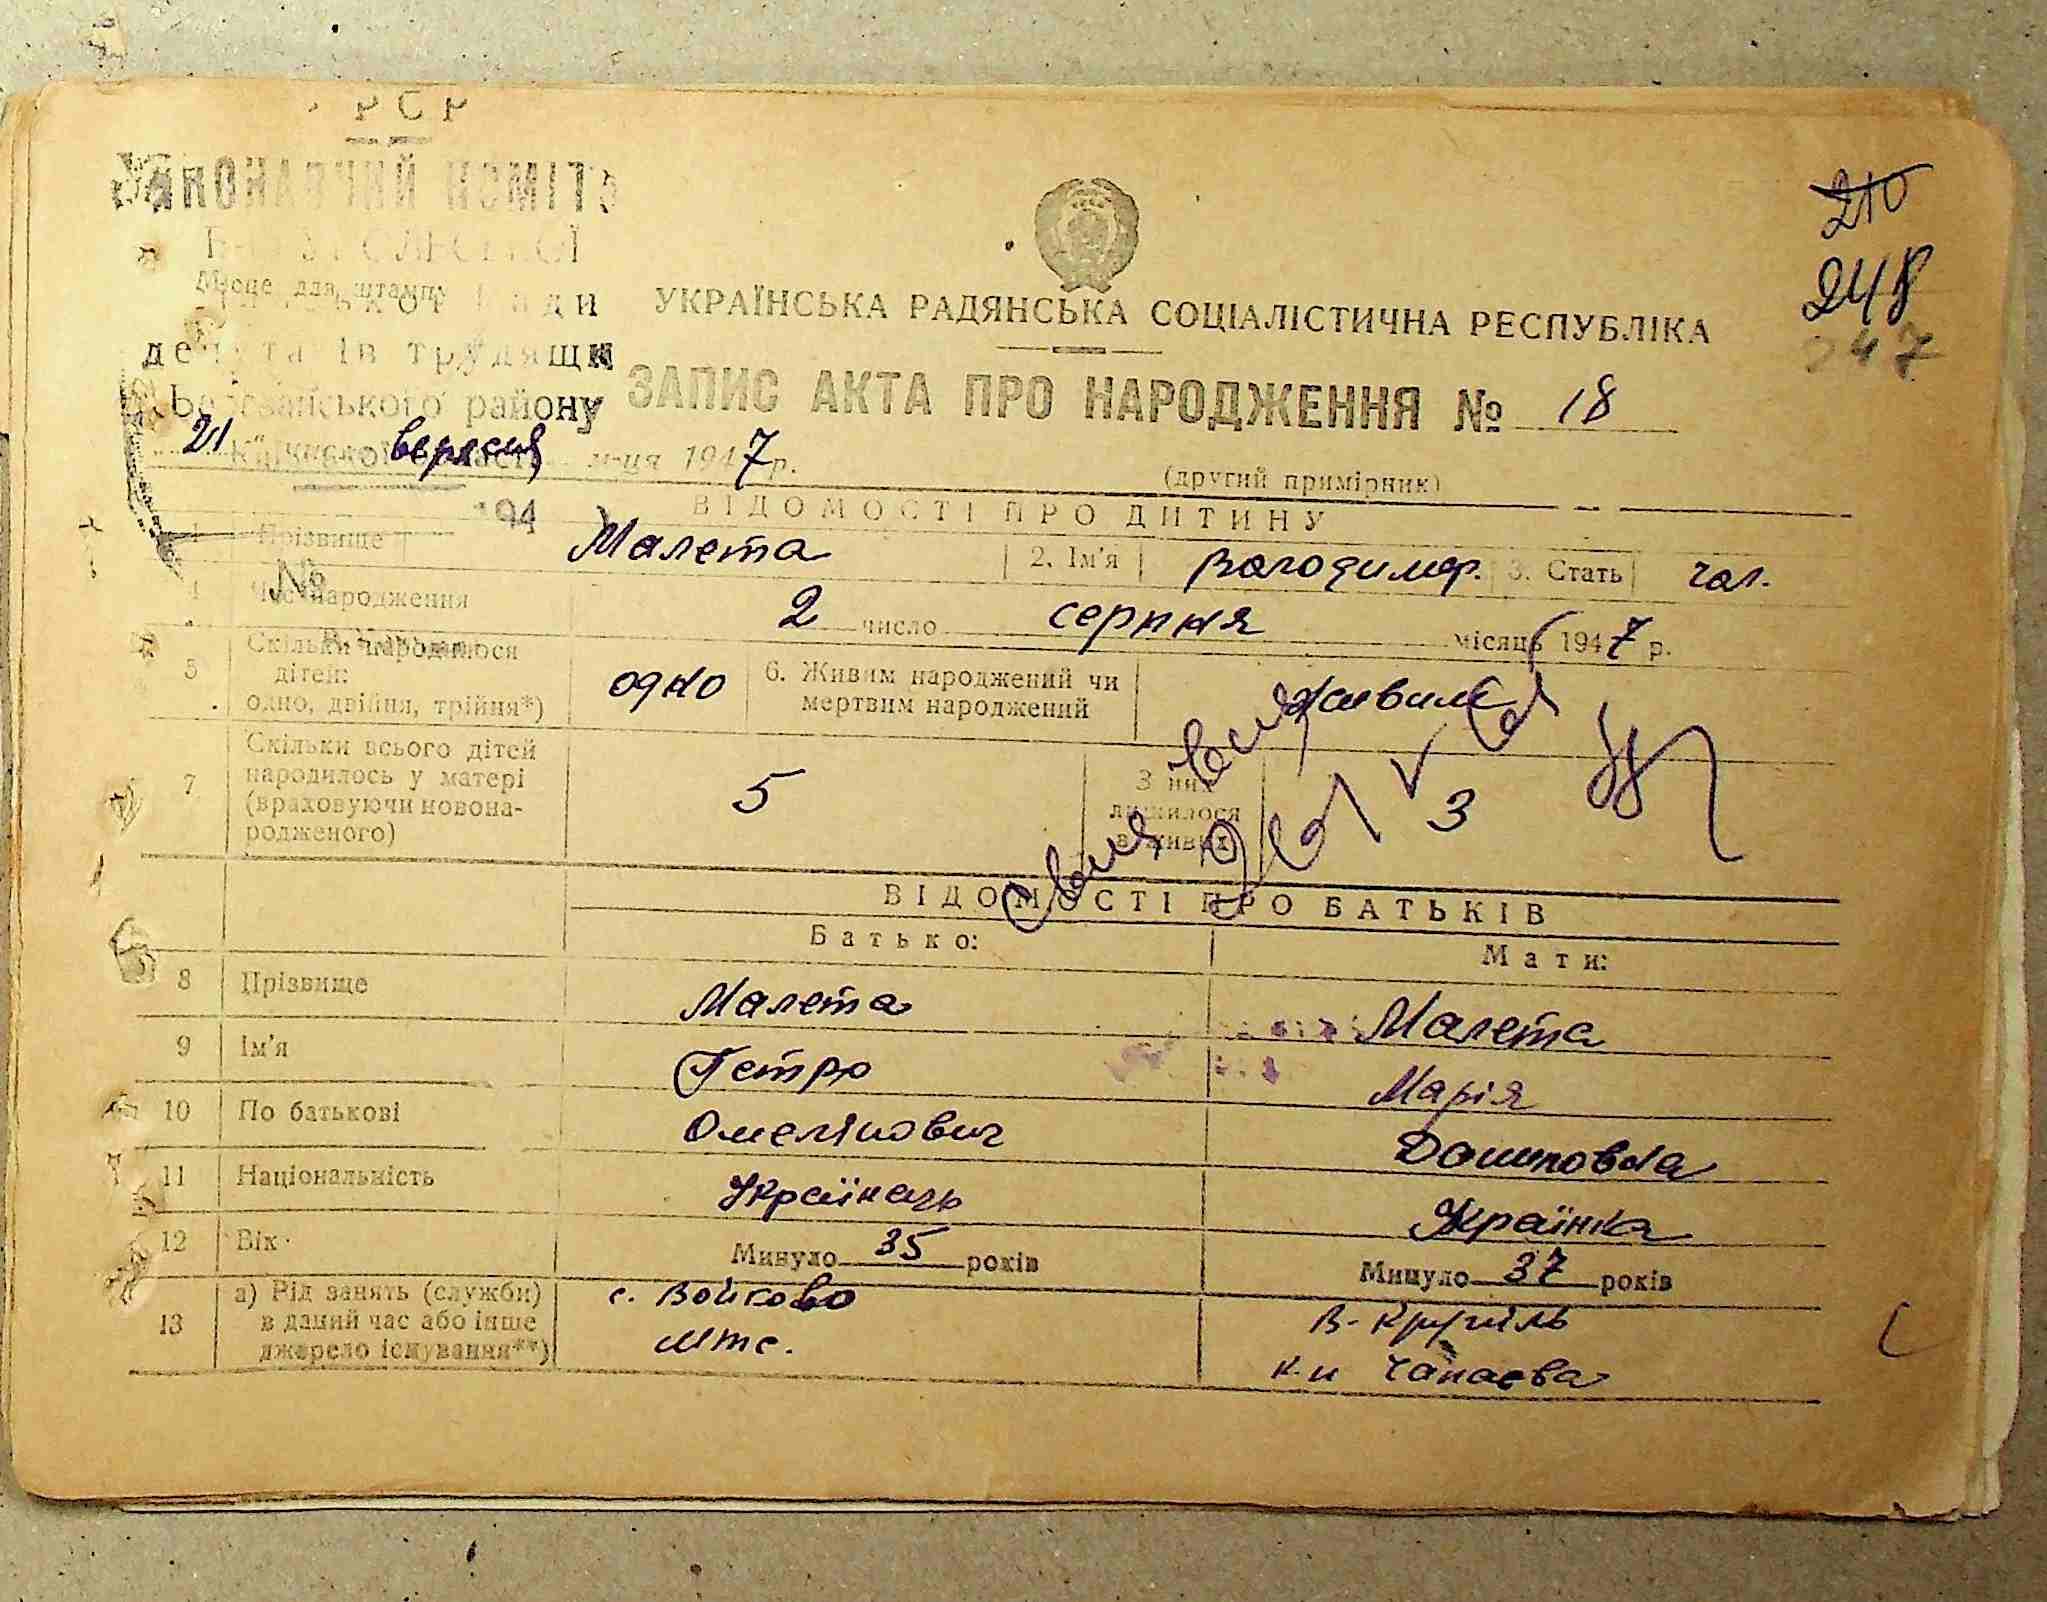 РСР
210
248
247
Місце для штампу
УКРАЇНСЬКА РАДЯНСЬКА СОЦІАЛІСТИЧНА РЕСПУБЛІКА
району
ЗАПИС АКТА ПРО НАРОДЖЕННЯ № 18
21 вересня м-ця 1947 р.
(другий примірник)
194
ВІДОМОСТІ ПРО ДИТИНУ
1 Прізвище Малета 2. Ім'я Володимер. 3. Стать чол.
№
4 Час народження 2 число серпня місяць 1947 р.
5 Скільки народилося дітей: одно, двійня, трійня*) одно 6. Живим народжений чи мертвим народжений живим
7 Скільки всього дітей народилось у матері (враховуючи новонародженого) 5 З них лишилося в живих 3
ВІДОМОСТІ ПРО БАТЬКІВ
Батько: Мати:
8 Прізвище Малета Малета
9 Ім'я Петро Марія
10 По батькові Омелянович
11 Національність Українець Українка
12 Вік Минуло 35 років Минуло 37 років
13 а) Рід занять (служби) в даний час або інше джерело існування**)
с. Войково
мтс.
к-п Чапаєва